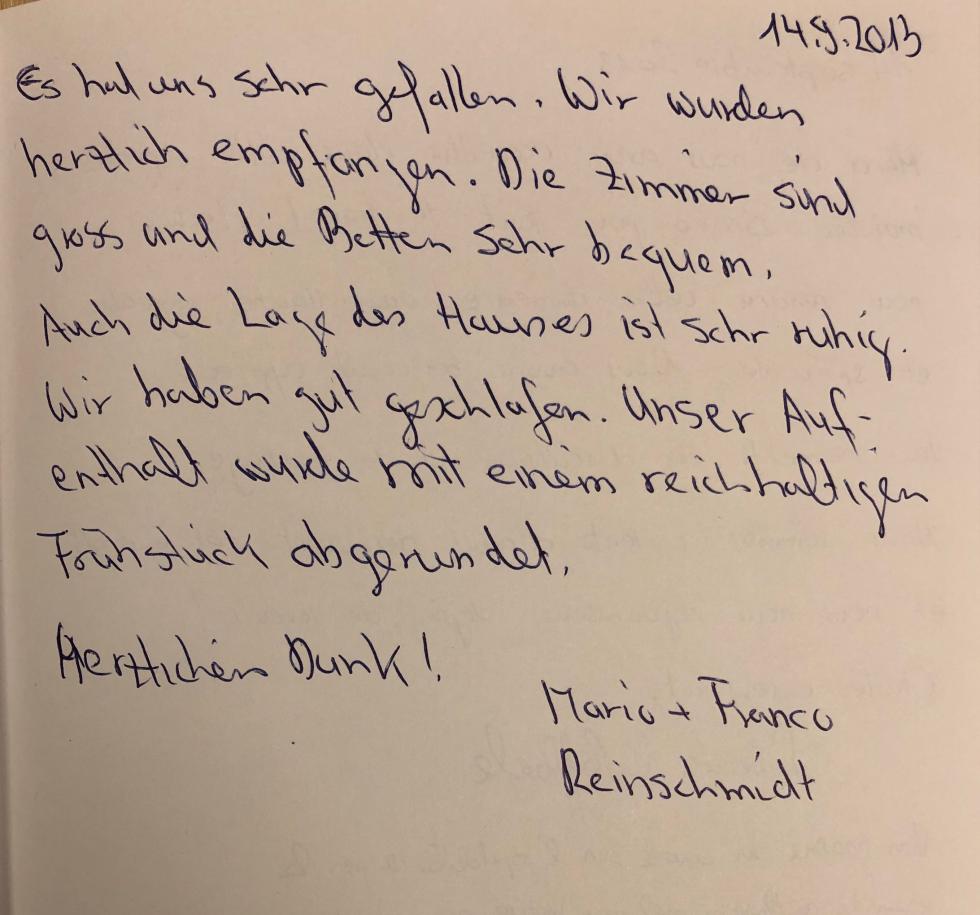 14.9.2013
Es hat uns sehr gefallen. Wir wurden
herzlich empfangen. Die Zimmer sind
gross und die Betten sehr bequem.
Auch die Lage des Hauses ist sehr ruhig.
Wir haben gut geschlafen. Unser Auf-
enthalt wurde mit einem reichhaltigen
Frühstück abgerundet.
Herzlichen Dank!
Mario + Franco
Reinschmidt